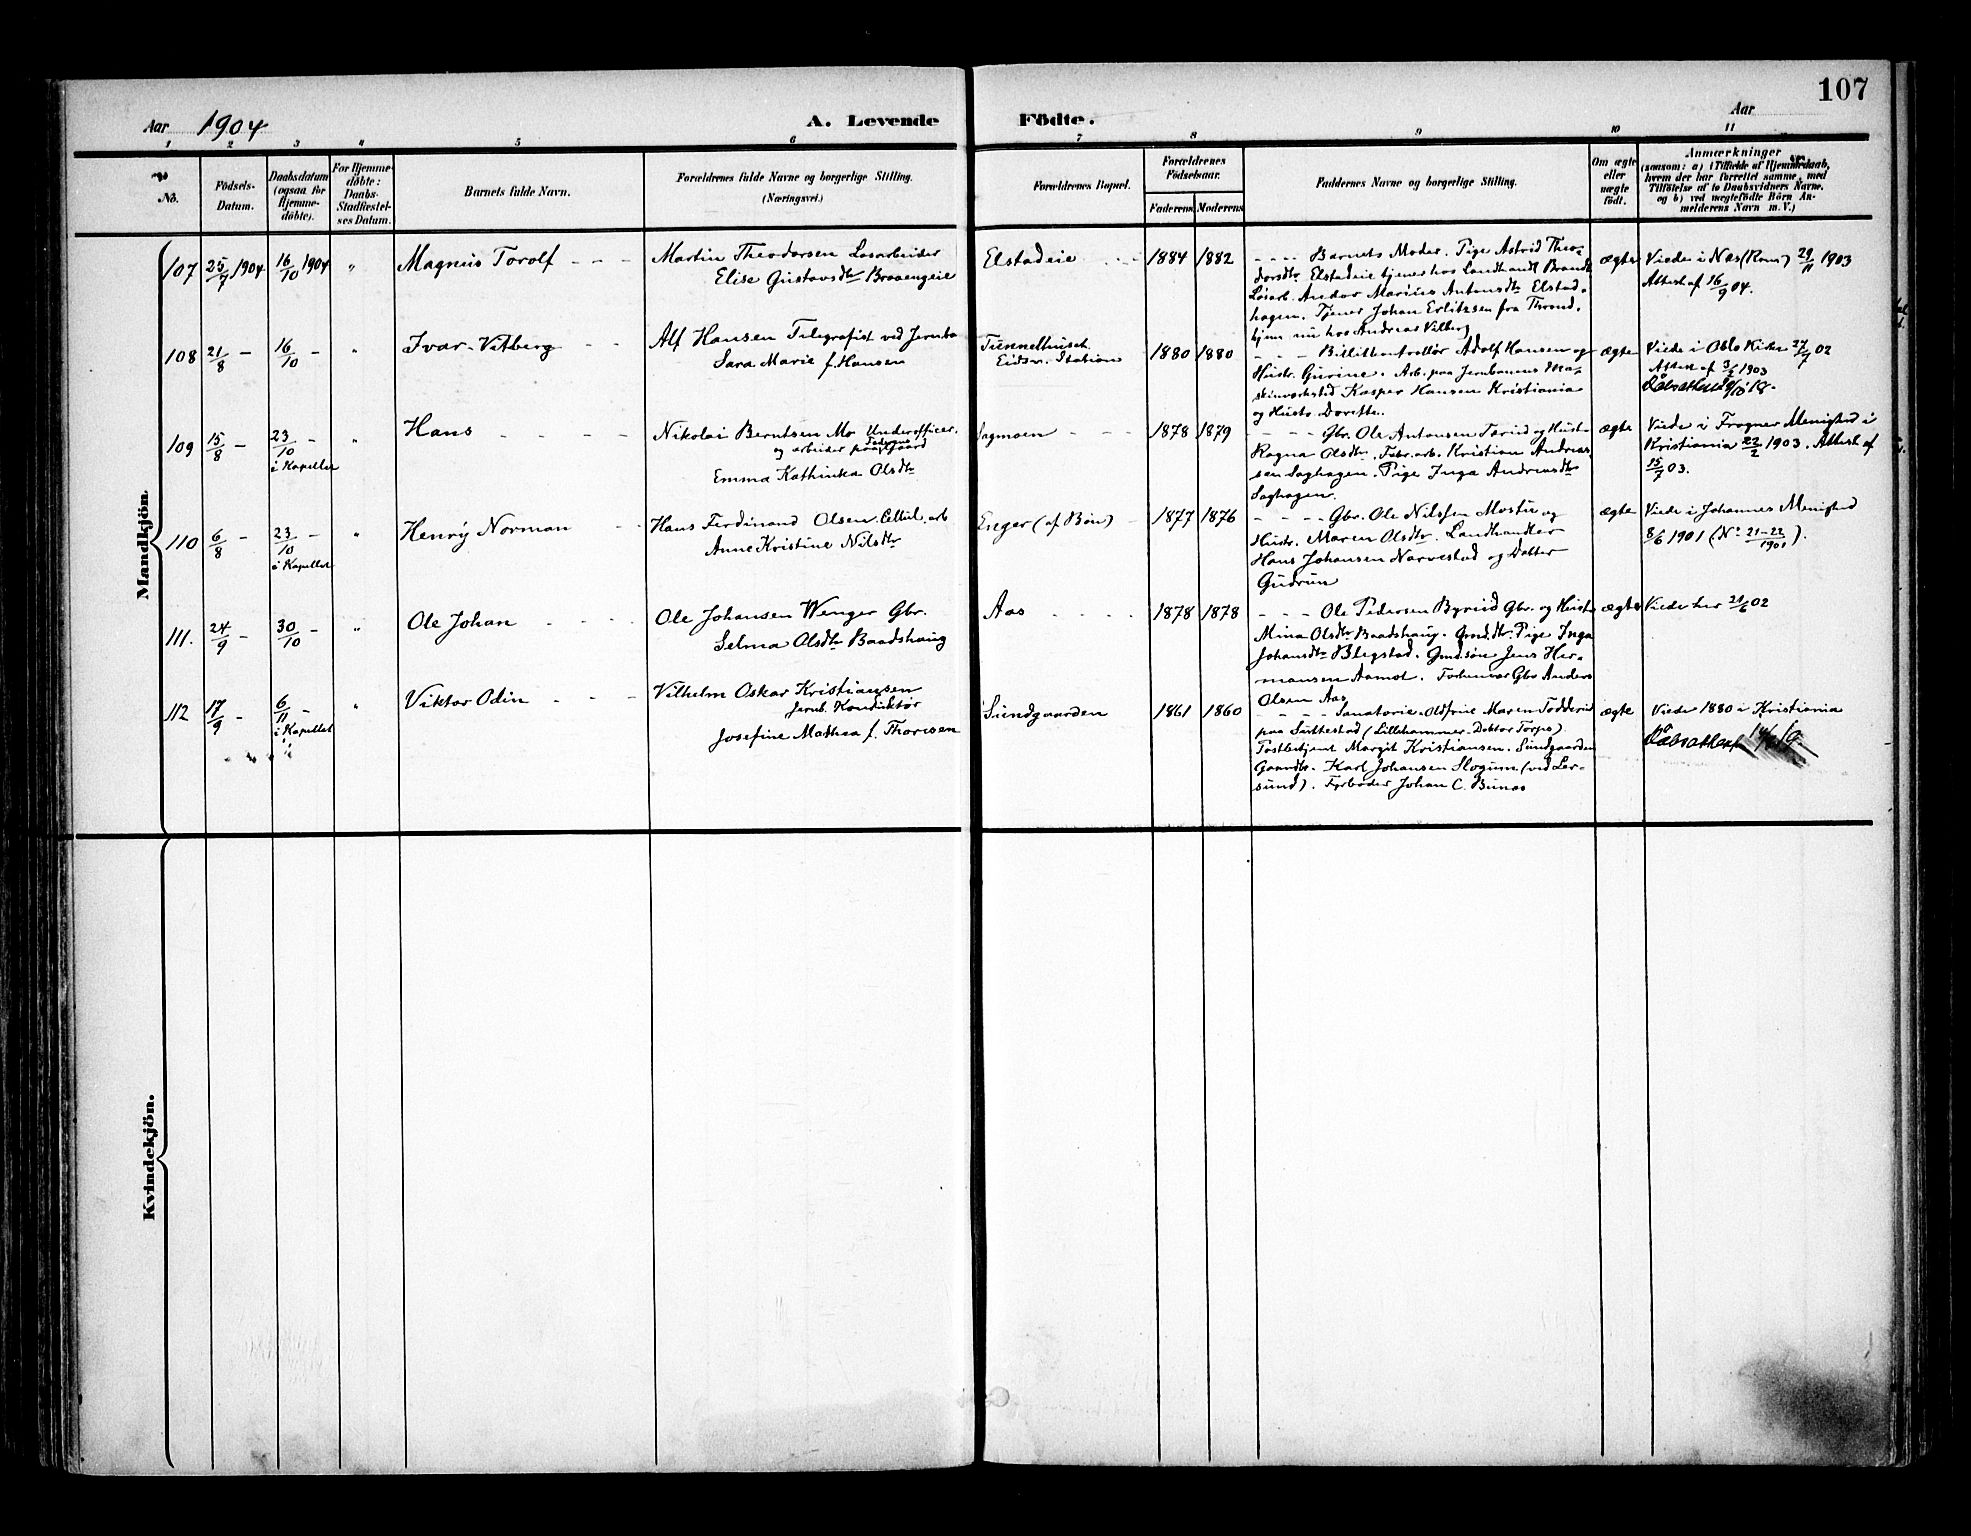 107
Aar 1904 A. Levende Födte. Aar
1 2 3 4 5 6 7 8 9 10 11
No.
Födsels-Datum.
Daabsdatum (ogsaa for Hjemme-döbte).
For Hjemme-döbte: Daabs-Stadfæstel-ses Datum.
Barnets fulde Navn.
Forældrenes fulde Navne og borgerlige Stilling.
(Næringsvei.)
Forældrenes Bopæl.
Forældrenes Födselsaar.
Faderens Moderens
Faddernes Navne og borgerlige Stilling.
Om ægte eller uægte födt.
Anmærkninger
(saasom: a) i Tilfælde af Hjemmedaab,
hvem der har forrettet samme, med
Tilföielse af to Daabsvidners Navne.
og b) ved uægtefödte Börn An-
melderens Navn m. V.)
Mandkjön.
107 25/7 1904 16/10 1904 " Magnus Torolf - - -
Martin Theodorsen Løsarbeider
Elise Gustavsdtr Braaengeie
Elstadeie
1884 1882
- - - - Barnets Moder. Pige Astrid Theo-
dorsdtr Elstadeie tjener hos Landhandl Brandt
Løsarb. Andor Marius Antonsdtr Elstad-
hagen. Tjener Johan Erlitzsen fra Thrond-
hjem nu hos Andreas Vilberg
ægte
Viede i Næs (Rom.) 29/11 1903
Attest af 16/9 04.
108 21/8 - 16/10 - " Ivar Vitberg - -
Alf Hansen Telegrafist ved Jernba
Sara Marie f. Hansen
Eidsv. Station
1880 1880
- - - Billetkontrollør Adolf Hansen og
Hustr. Gurine. Arb. paa Jernbanens Ma-
skinværksted Kasper Hansen Kristiania
og Hustr. Dorette.
ægte
Viede i Oslo Kirke 27/7 02
Attest af 3/2 1903
109 15/8 - 23/10 - i Kapellet " Hans - - - -
Nikolai Berntsen Mo Underofficer.
og arbeider paa Faderens Gaard
Emma Kathinka Olsdtr
Sagmoen - - -
1878 1879
- - - - Gbr. Ole Antonsen Tærud og Hustr
Ragna Olsdtr. Fabr.arb. Kristian Andreas
sen Saghagen. Pige Inga Andreasdtr
Saghagen.
ægte
Viede i Frogner Menighed i
Kristiania 22/2 1903. Attest af
15/7 03.
110 6/8 - 23/10 - i Kapellet " Henry Norman - -
Hans Ferdinand Olsen. Cellul. arb
Anne Kristine Nilsdtr
Enger (af Bøn) -
1877 1876
- - - - Gbr. Ole Nilssen Mostu og
Hustr. Maren Olsdtr. Landhandler
Hans Johansen Narvestad og Datter
Gudrun
ægte
Viede i Johannes Menighed
8/6 1901 (No 21-22/1901).
111. 24/9 - 30/10 - " Ole Johan - - -
Ole Johansen Wenger Gbr.
Selma Olsdtr Baadshaug
Aas - - - -
1878 1878
- - - Ole Pedersen Byrud Gbr. og Hustr
Mina Olsdtr Baadshaug. Grmd.dtr. Pige Inga
Johansdtr Blegstad. Grmd.søn Jens Her-
mansen Aamot. Forhenvær Gbr Anders
Olsen Aas
ægte
Viede her 21/6 02
112 17/9 - 6/11 - i Kapellet " Viktor Odin - - -
Vilhelm Oskar Kristiansen
Jernb. Konduktør
Josefine Mathea f. Thoresen
Sundgaarden
1861 1860
- - - - Sanatorie-Oldfrue Maren Todderud
paa Suttestad (Lillehammer. Doktor Torps)
Postbetjent Margit Kristiansen. Sundgaarden
Gaarddtr. Karl Johansen Slogum (ved Ler-
sund). Fyrbøder Johan C. Bunæs
ægte
Viede 1880 i Kristiania
Kvindekjön.